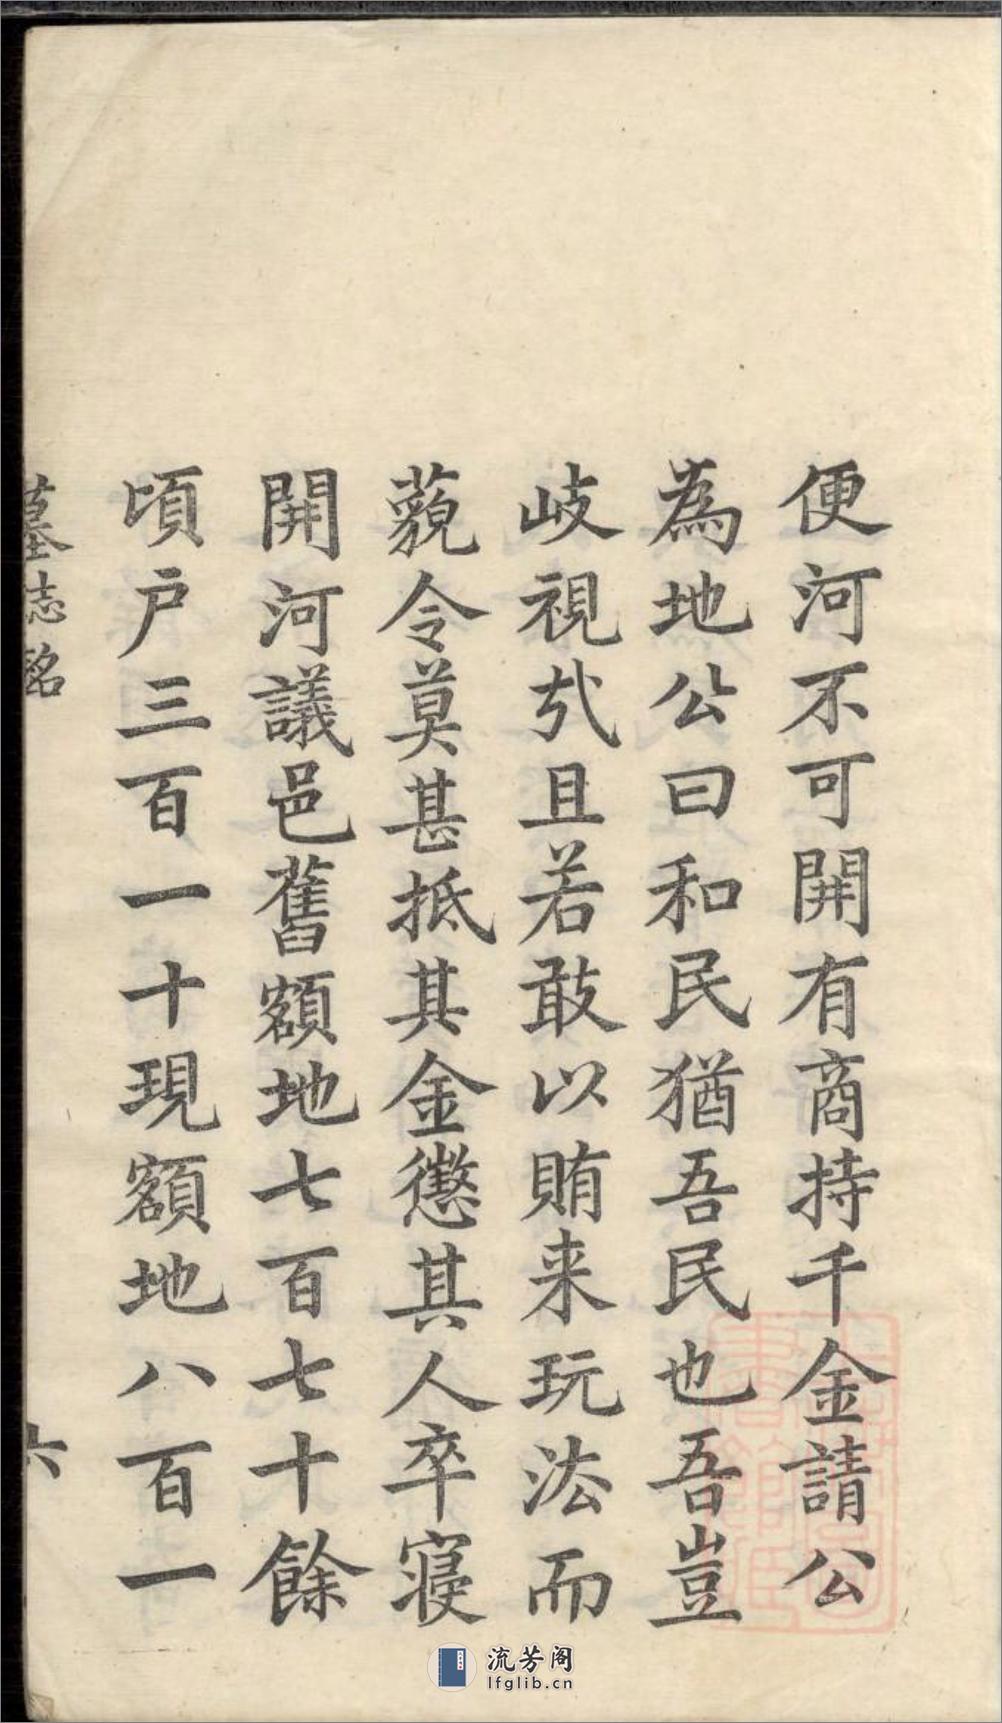 便河不可開有商持千金請公
為地公曰和民猶吾民也吾豈
歧視㢤且若敢以賄来玩法而
藐令莫甚抵其金懲其人卒寝
開河議邑舊額地七百七十餘
頃户三百一十現額地八百一
墓志銘
六
流芳阁
lfglib.cn